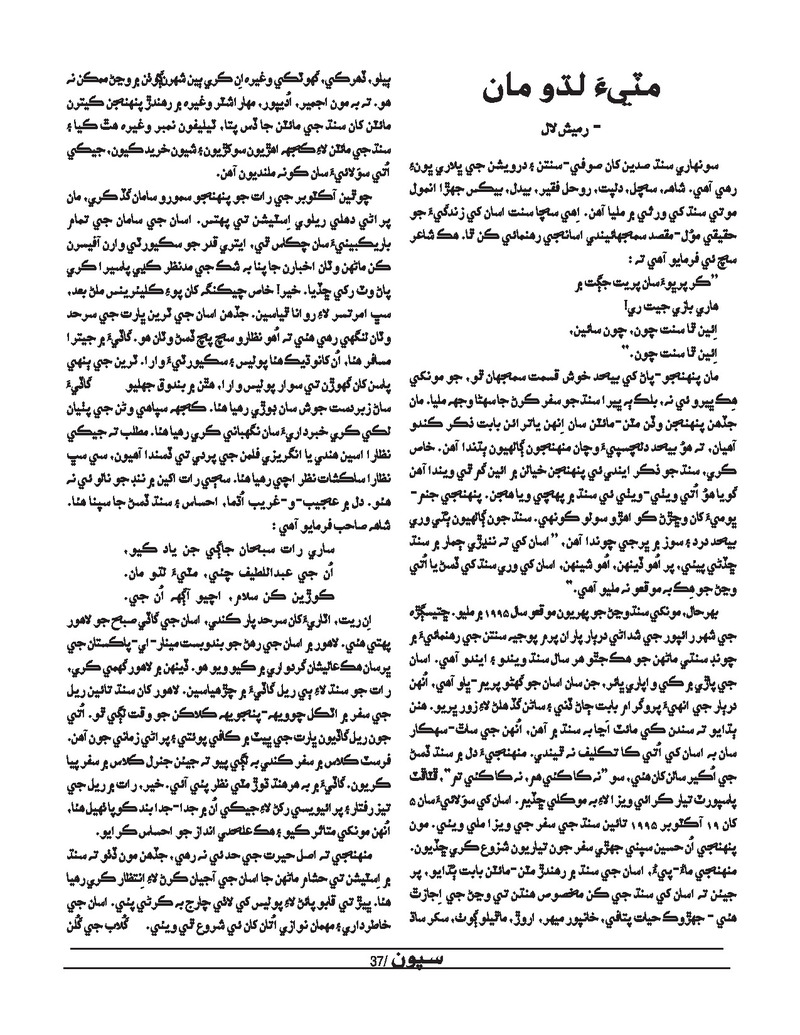 مٽيءَ لڌو مان
- رميش لال
سونهاري سنڌ صدين کان صوفي-سنتن ۽ درويشن جي ڀلاري ڀونءِ
رهي آهي. شاهه، سچل، دلپت، روحل فقير، بيدل، بيڪس جهڙا انمول
موتي سنڌ کي ورثي ۾ مليا آهن. اِهي سچا سنت اسان کي زندگيءَ جو
حقيقي موُل-مقصد سمجهائيندي اسانجي رهنمائي ڪن ٿا. هڪ شاعر
سچ ئي فرمايو آهي ته :
”ڪر پرڀوءَ سان پريت جڳت ۾
هاري بازي جيت ري!
اِئين ٿا سنت چون، چون سائين،
اِئين ٿا سنت چون.“
مان پنهنجو-پاڻ کي بيحد خوش قسمت سمجهان ٿو، جو مونکي
هِڪ ڀيرو ئي نه، بلڪ ٻه ڀيرا سنڌ جو سفر ڪرڻ جا سهڻا وجهہ مليا. مان
جڏهن پنهنجن وڏن مٽن-مائٽن سان اِنهن ياترائن بابت ذڪر ڪندو
آهيان، ته هوُ بيحد دلچسپيءَ وچان منهنجون ڳالهيون ٻڌندا آهن. خاص
ڪري، سنڌ جو ذڪر ايندي ئي پنهنجن خيالن ۾ ائين گم ٿي ويندا آهن
گويا هوُ اُتي ويٺي-ويٺي ئي سنڌ ۾ پهچي ويا هجن. پنهنجي جنم-
ڀوميءَ کان وڇڙڻ ڪو اهڙو سولو ڪونهي. سنڌ جون ڳالهيون ٻڌي وري
بيحد درد ۽ سوز ۾ ڀرجي چوندا آهن، ”اسان کي ته ننڍڙي ڄمار ۾ سنڌ
ڇڏڻي پيئي، پر اُهو ڏينهن، اُهو شينهن، اسان کي وري سنڌ کي ڏسڻ يا اُتي
وڃڻ جو هڪ به موقعو نه مليو آهي.“
بهرحال، مونکي سنڌ وڃڻ جو پهريون موقعو سال ۱۹۹۵ ۾ مليو. ڇتيسڳڙهه
جي شهر رائپور جي شداڻي دربار پاران پرم پوڄيه سنتن جي رهنمائيءَ ۾
چونڊ سنڌي ماڻهن جو هڪ جٿو هر سال سنڌ ويندو ۽ ايندو آهي. اسان
جي پاڙي ۾ ڪي واپاري ڀائر، جن سان اسان جو گهڻو پريم-ڀاو آهي، اُنهن
دربار جي انهيءَ پروگرام بابت ڄاڻ ڏني ۽ ساڻن گڏ هلڻ لاءِ زور ڀريو. هنن
ٻڌايو ته سندن ڪي مائٽ اَڃا به سنڌ ۾ آهن، اُنهن جي ساٿ-سهڪار
سان به اسان کي اُتي ڪا تڪليف نه ٿيندي. منهنجيءَ دل ۾ سنڌ ڏسڻ
جي اُڪير سالن کان هئي، سو ”نه ڪا ڪئي هم، نه ڪا ڪئي تم“، ڦٽاڦٽ
پاسپورٽ تيار ڪرائي ويزا لاءِ به موڪلي ڇڏيم. اسان کي سوَلائيءَ سان ۵
کان ۱۹ آڪٽوبر ۱۹۹۵ تائين سنڌ جي سفر جي ويزا ملي ويئي. مون
پنهنجي اُن حسين سپني جهڙي سفر جون تياريون شروع ڪري ڇڏيون.
منهنجي ماءُ-پيءُ، اسان جي سنڌ ۾ رهندڙ مٽن-مائٽن بابت ٻڌايو، پر
جيئن ته اسان کي سنڌ جي ڪن مخصوص هنڌن تي وڃڻ جي اِجازت
هئي - جهڙوڪ حيات پتافي، خانپور ميهر، اروڙ، ماٿيلو ڳوٺ، سکر ساڌ
ٻيلو، ڏهرڪي، گهوٽڪي وغيره اِن ڪري ٻين شهرن ڳوٺن ۾ وڃڻ ممڪن نہ
هو. تہ بہ مون اجمير، اُديپور، مهاراشٽر وغيره ۾ رهندڙ پنهنجن ڪيترن
مائٽن کان سنڌ جي مائٽن جا ڏس پتا، ٽيليفون نمبر وغيره هٿ ڪيا ۽
سنڌ جي مائٽن لاءِ ڪجهہ اهڙيون سوکڙيون ۽ شيون خريد ڪيون، جيڪي
اُتي سوَلائيءَ سان ڪونہ ملنديون آهن.
چوٿين آڪٽوبر جي رات جو پنهنجو سمورو سامان گڏ ڪري، مان
پراڻي دهلي ريلوي اِسٽيشن تي پهتس. اسان جي سامان جي تمام
باريڪبينيءَ سان چڪاس ٿي، ايتري قدر جو سڪيورٽي وارن آفيسرن
ڪن ماڻهن وٽان اخبارن جا پنا به شڪ جي مدنظر ڪڍي پاسيرا ڪري
پاڻ وٽ رکي ڇڏيا. خير! خاص چيڪنگ کان پوءِ ڪليئرينس ملڻ بعد،
سڀ امرتسر لاءِ روانا ٿياسين. جڏهن اسان جي ٽرين ڀارت جي سرحد
وٽان لنگهي رهي هئي تہ اُهو نظارو سچ پچ ڏسڻ وٽان هو. گاڏيءَ ۾ جيترا
مسافر هئا، اُن کان وڌيڪ هئا پوليس ۽ سڪيورٽيءَ وارا. ٽرين جي ٻنهي
پاسن کان گهوڙن تي سوار پوليس وارا، هٿن ۾ بندوق جهليو گاڏيءَ
ساڻ زبردست جوش سان ڊوڙي رهيا هئا. ڪجهہ سپاهي وڻن جي پٺيان
لڪي ڪري خبرداريءَ سان نگهباني ڪري رهيا هئا. مطلب ته جيڪي
نظارا اسين هندي يا انگريزي فلمن جي پردي تي ڏسندا آهيون، سي سڀ
نظارا ساڪشات نظر اچي رهيا هئا. سڄي رات اکين ۾ ننڊ جو نالو ئي نہ
هئو. دل ۾ عجيب-و-غريب اُڌما، احساس ۽ سنڌ ڏسڻ جا سپنا هئا.
شاهہ صاحب فرمايو آهي :
ساري رات سبحان جاڳي جن ياد ڪيو،
اُن جي عبداللطيف چئي، مٽيءَ لڌو مان.
ڪوڙين ڪن سلام، اچيو آڳهہ اُن جي.
اِن ريت، اٽاريءَ کان سرحد پار ڪندي، اسان جي گاڏي صبح جو لاهور
پهتي هئي. لاهور ۾ اسان جي رهڻ جو بندوبست مينار-اي-پاڪستان جي
ڀرسان هڪ عاليشان گردواري ۾ ڪيو ويو هو. ڏينهن ۾ لاهور گهمي ڪري،
رات جو سنڌ لاءِ ٻي ريل گاڏيءَ ۾ چڙهياسين. لاهور کان سنڌ تائين ريل
جي سفر ۾ اٽڪل چوويهہ-پنجويهہ ڪلاڪن جو وقت لڳي ٿو. اُتي
جون ريل گاڏيون ڀارت جي ڀيٽ ۾ ڪافي پوئتي ۽ پراڻي زماني جون آهن.
فرسٽ ڪلاس ۾ سفر ڪندي به لڳي پيو ته جيئن جنرل ڪلاس ۾ سفر پيا
ڪريون. گاڏيءَ ۾ به هر هنڌ ڌوڙ مٽي نظر پئي آئي. خير، رات ۾ ريل جي
تيز رفتار ۽ پرائيويسي رکڻ لاءِ جيڪي اُن ۾ جدا-جدا بند ڪوپا ٺهيل هئا،
اُنهن مونکي متاثر ڪيو ۽ هڪ علحدي انداز جو احساس ڪرايو.
منهنجي تہ اصل حيرت جي حد ئي نہ رهي، جڏهن مون ڏٺو تہ سنڌ
۾ اِسٽيشن تي حشام ماڻهن جا اسان جي آجيان ڪرڻ لاءِ اِنتظار ڪري رهيا
هئا. ڀيڙ تي قابو پائڻ لاءِ پوليس کي لاٺي چارج به ڪرڻي پئي. اسان جي
خاطرداري ۽ مهمان نوازي اُتان کان ئي شروع ٿي ويئي. گلاب جي گُلن
سپون /37